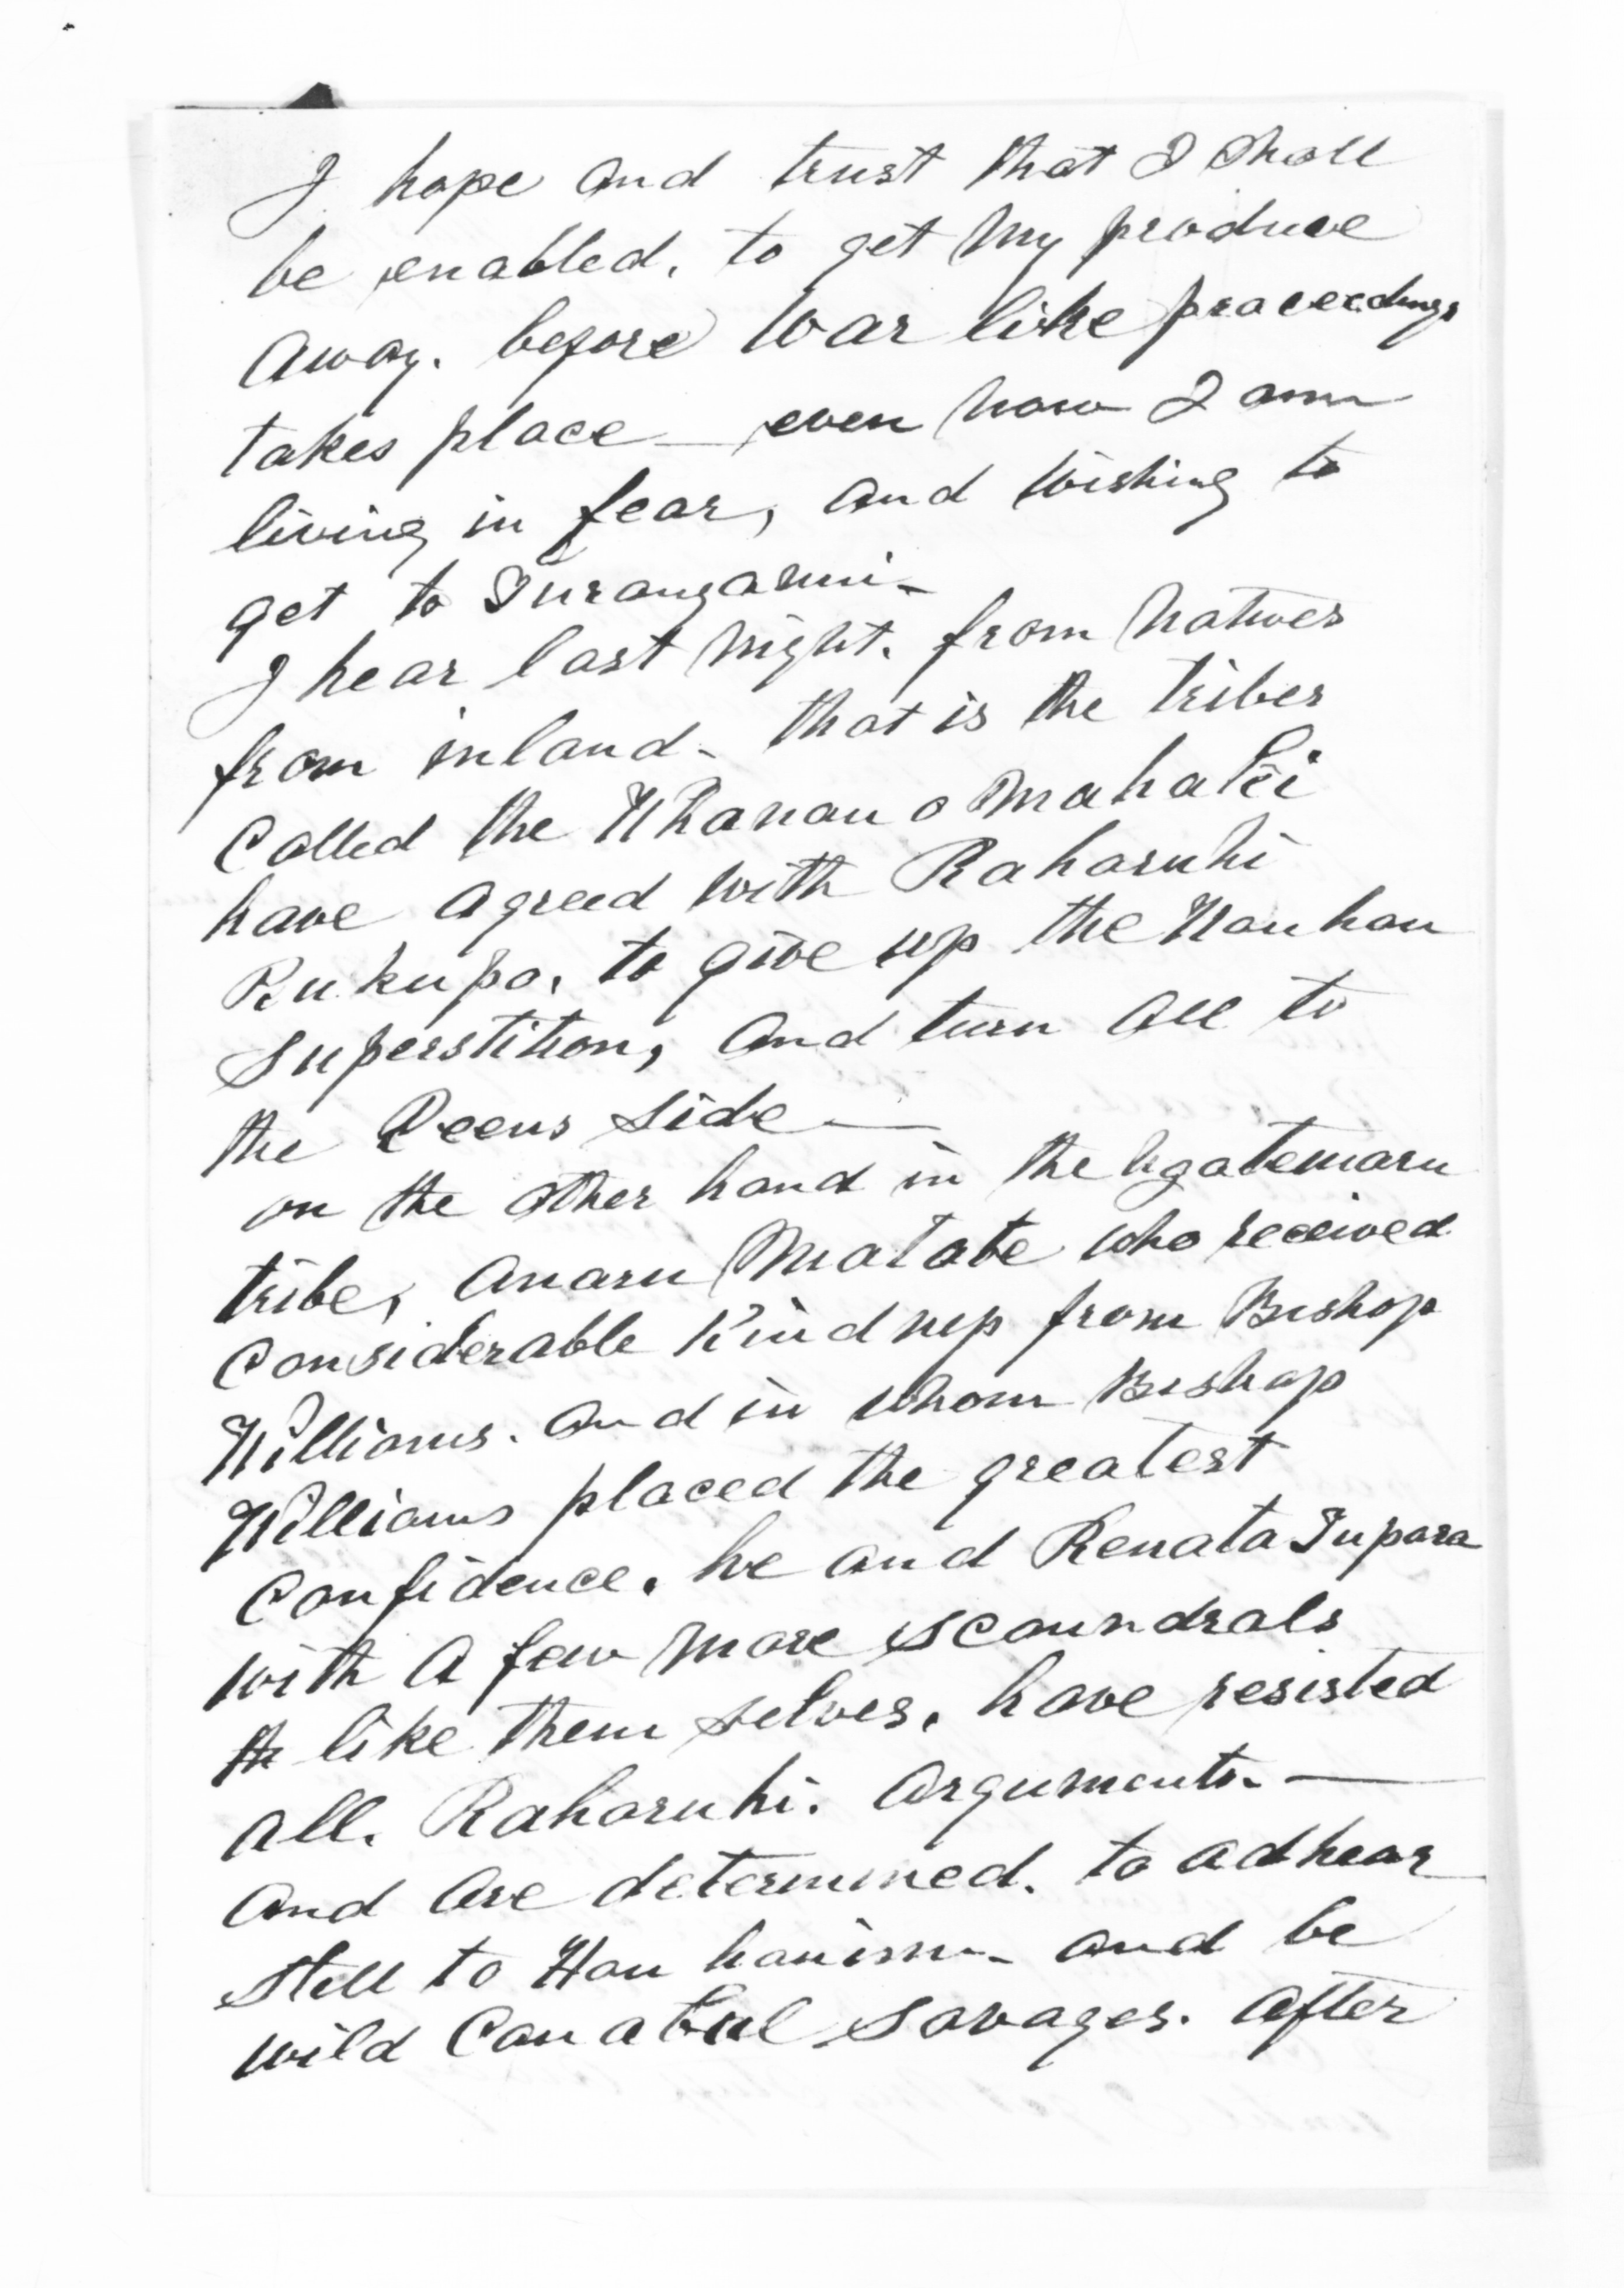 I hope and trust that I shall
be enabled. to get my produce
away. before War like proceedings
takes place — even now I am
living in fear, and wishing to
get to Turanganui –
I hear last night. from Natives
from inland – that is the tribes
Called the Whanau o Mahaki
have agreed with Raharuhi
Rukupo. to give up the Hau hau
superstition, and turn all to
the Qeens side —
on the other hand in the Ngatemaru
tribe, Anaru Matate who received
Considerable Kindness from Bishop
Williams. and in whom Bishop
Williams placed the greatest
Confidence. he and Renata Tupara
with a few more scoundrals
th like them selves. have resisted
all. Raharuhi. Arguments. —
and are determined. to adhear
still to Hau hauism – and be
wild Canabul savages. After